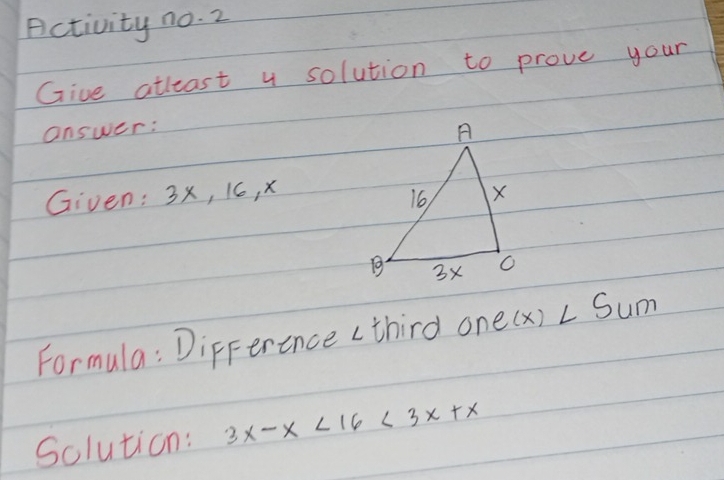 Activity no. 2
Give atleast 4 solution to prove your
answer:
Given: 3x, 16, x
A
16
x
B
3x
C
Formula: Difference < third one (x) < Sum
Solution: 3x - x < 16 < 3x + x